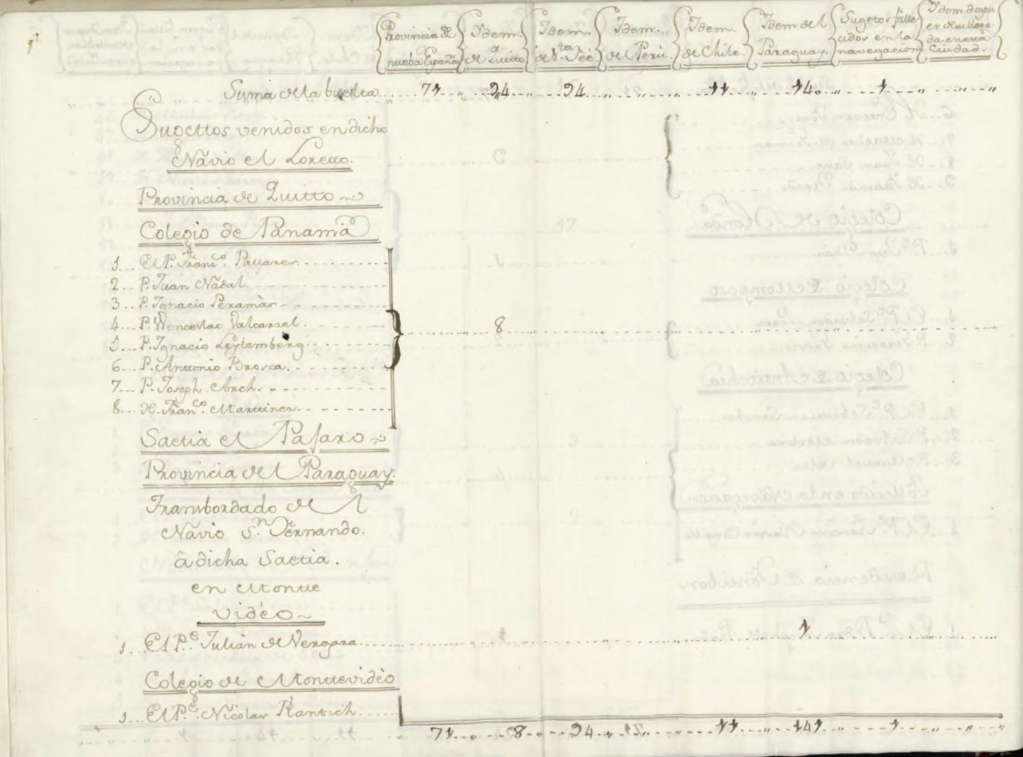 Provincia de nueba España
Idem de Quitto
Idem de Nª. Feè
Idem. de Perù.
Idem. de Chile.
Idem del Paraguay.
Sugetos falle cidos en la navegacion
Idem despu es
da en esta Ciudad.
Suma de la buelta 71 24 24 11 140 1
Sugettos venidos en dicho
Návio el Loretto.
Provincia de Quitto
Colegio de Panamà
1 El P. Franco. Pallares
2 P. Juan Nadal
3 P. Ignacio Peramàs
4 P. Wenceslao Valcarzel 8
5 P. Ignacio
6 P. Antonio Brosca
7 P. Joseph Arch.
8 H. Franco. Martines
Saetia el Paſaro
Provincia del Paraguay.
Transbordado del
Navio Sn. Fernando.
â dicha Saetia.
en Monte
vidèo
1 El Pe. Julian de Vergara 1
Colegio de Montevidèo
1 El Pe. Nicolas Plantich
71 8 24 11 141 1